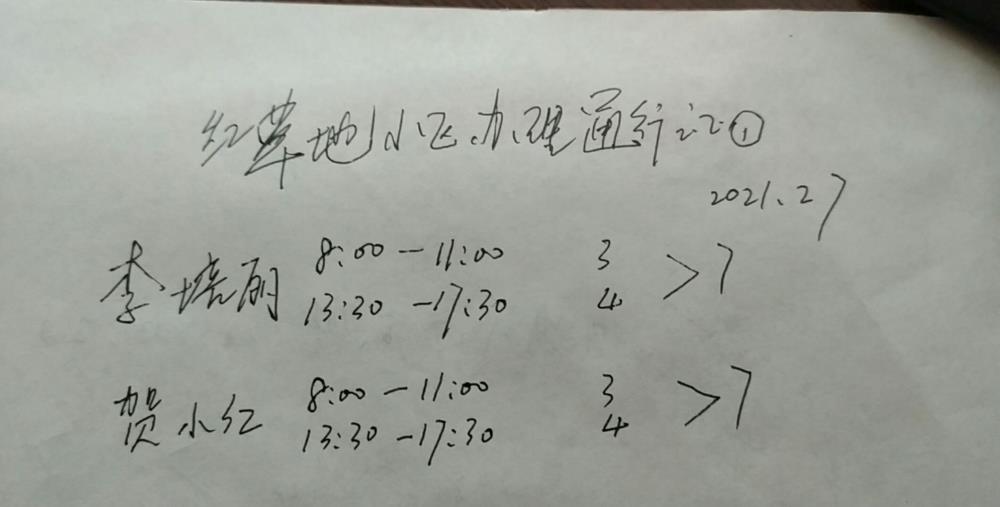 红草地小区办理通行证①
2021.2 7
李培丽 8:00-11:00 3 >7
13:30-17:30 4
贺小红 8:00-11:00 3 >7
13:30-17:30 4